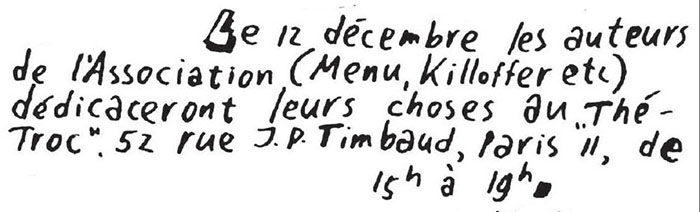 Le 12 décembre les auteurs
de l'Association (Menu, Killoffer etc)
dédicaceront leurs choses au „Thé-
Troc". 52 rue J.P. Timbaud, Paris 11, de
15h à 19h.